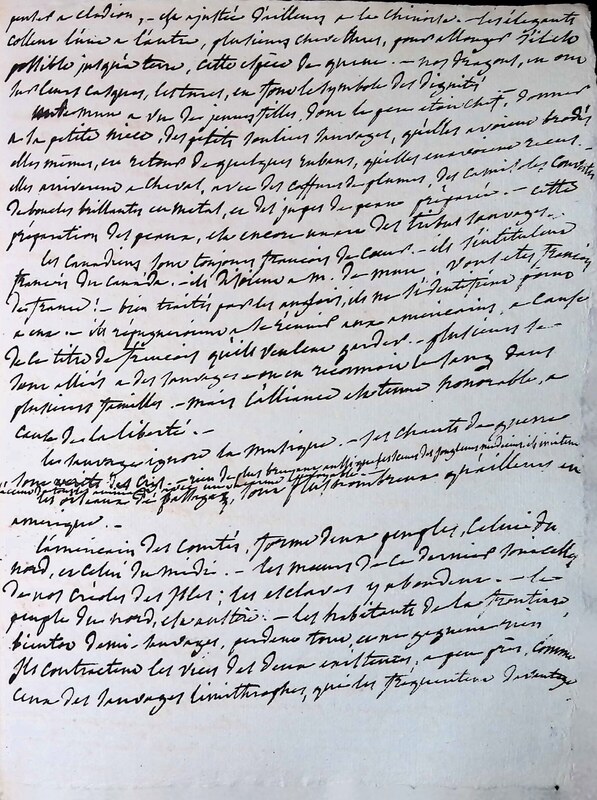 a clodion, - est ajustée d'ailleurs a la chinoise. - les élégants
collent l'une a l'autre, plusieurs chevelures, pour allonger s'il est
possible jusqu'a terre, cette espèce de queue. - nos dragons, en ont
sur leurs casques, les turcs, en font le symbole des dignités
mun a vu des jeunes filles, dont le pere etoit chef, donner
a la petite niece, des petits souliers sauvages, qu'elles avoient brodés
elles mêmes, en retour de quelques rubans, qu'elles en avoient recus. -
elles arriverent a cheval, avec des coffures de plumes, des couvertes
de boucles brillantes en metal, et des jupes de peau préparée. - cette
préparation des peaux, est encore un art des tribus sauvages. -
les Canadiens sont toujours francois de cœur. - ils s'intitulent
francois du canada. - ils disoient a m. de mun, vous etes francois
de france! - bien traités par les anglois, ils ne s'identifient point
a eux. - ils répugneront a se réunir aux americains, a cause
de ce titre de francois qu'ils veulent garder. - plusieurs se
sont alliés a des sauvages et on en reconnoit le sang dans
plusieurs familles. - mais l'alliance est tenue honorable, a
cause de la liberté. -
les sauvages ignore la musique. - ses chants de guerre
sont des cris. - rien de plus bruyant aussi que ceux des jongleurs medecins, ils imitent
les oiseaux de passage, sont plus nombreux qu'ailleurs en
amerique. -
l'américain des comtés, forme deux peuples, celui du
nord, et celui du midi. - les mœurs de ce dernier sont celles
de nos créoles des isles; les esclaves y abondent. - le
peuple du nord, est austère. - les habitants de la frontiere
bientot demi-sauvages, perdent tout, et ne gagnent rien
ils contractent les vices des deux existences, a peu près, comme
ceux des sauvages limithrophes, qui les fréquentent davantage